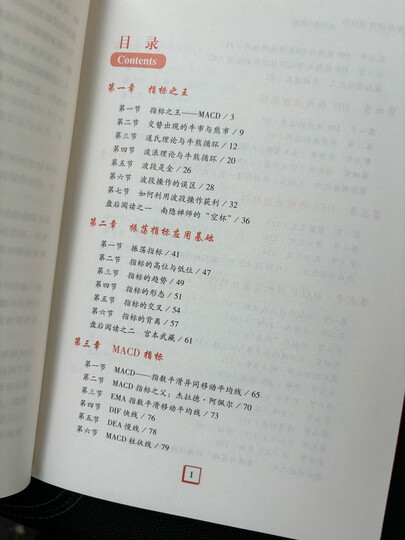 目录
Contents
第一章 指标之王
第一节 指标之王——MACD / 3
第二节 交替出现的牛市与熊市 / 9
第三节 道氏理论与牛熊循环 / 12
第四节 波浪理论与牛熊循环 / 20
第五节 波段是金 / 26
第六节 波段操作的误区 / 28
第七节 如何利用波段操作获利 / 32
盘后阅读之一 南隐禅师的“空杯” / 36
第二章 振荡指标应用基础
第一节 振荡指标 / 41
第二节 指标的高位与低位 / 47
第三节 指标的趋势 / 49
第四节 指标的形态 / 51
第五节 指标的交叉 / 54
第六节 指标的背离 / 57
盘后阅读之二 宫本武藏 / 61
第三章 MACD 指标
第一节 MACD——指数平滑异同移动平均线 / 65
第二节 MACD 指标之父：杰拉德·阿佩尔 / 70
第三节 EMA 指数平滑移动平均线 / 73
第四节 DIF 快线 / 76
第五节 DEA 慢线 / 78
第六节 MACD 柱状线 / 79
1